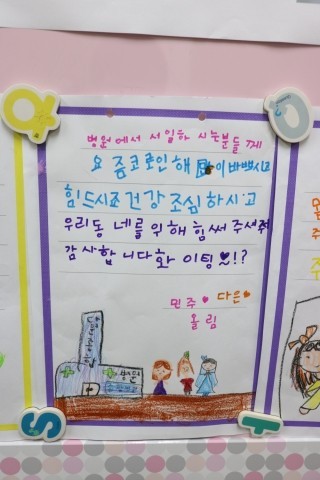 병원에서 서일하 시는분들께
요즘코로인해 많이바쁘시고
힘드시죠건강 조심하시고
우리동 네를위해힘써 주셔셔
감사합 니다화 이팅♥!?
민주♥ 다은♥
올림
병원